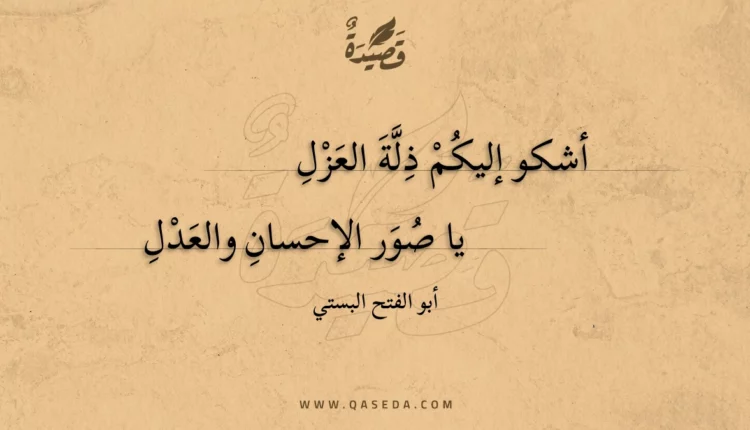 قَصِيْدَةٌ
أشكو إليكُمْ ذِلَّةَ العَزْلِ
يا صُوَر الإحسانِ والعَدْلِ
أبو الفتح البستي
WWW.QASEDA.COM